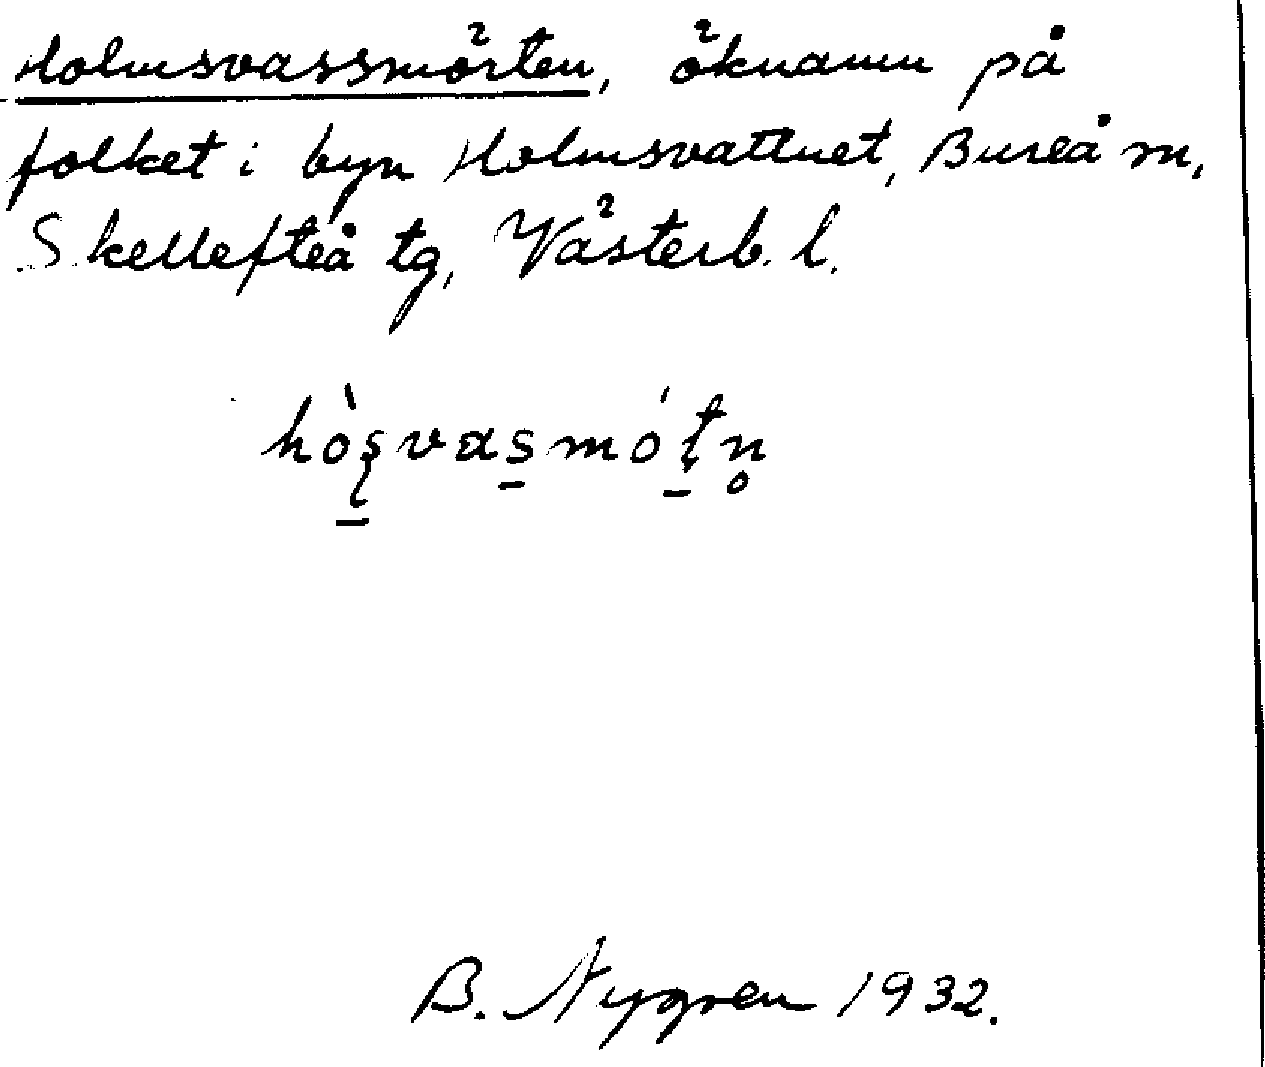 Holmsvassmörten, öknamn på
folket i byn Holmsvattnet, Bureå sn,
Skellefteå tg, Västerb. l.
hò̱ʂvas̱mót̠n̥
B. Nygren 1932.